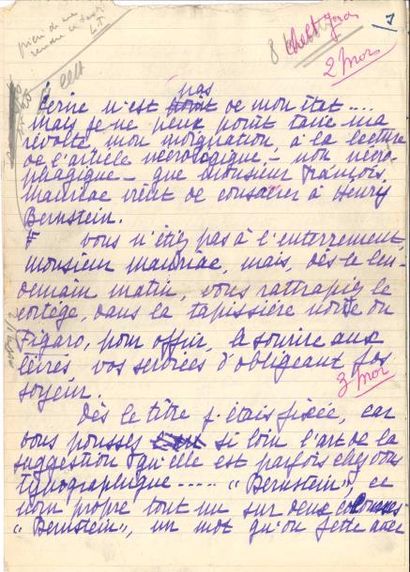 prière de me
rendre ce texte
8 1
2 Mor
pas
Écrire n'est point de mon état....
Mais je ne peux point taire ma
révolte, mon indignation, à la lecture
de l'article nécrologique – non nécro-
phagique – que Monsieur François
Mauriac vient de consacrer à Henry
Bernstein.
Vous n'étiez pas à l'enterrement,
Monsieur Mauriac, mais, dès le len-
demain matin, vous rattrapiez le
cortège, dans la tapissière noire du
Figaro, pour offrir, le sourire aux
lèvres vos services d'obligeant fos
soyeur.
3 Mor
Dès le titre j'étais fixée, car
vous poussez si loin l'art de la
suggestion qu'elle est parfois chez vous
typographique ..... "Bernstein", ce
nom propre tout nu sur deux colonnes
"Bernstein", un mot qu'on jette avec